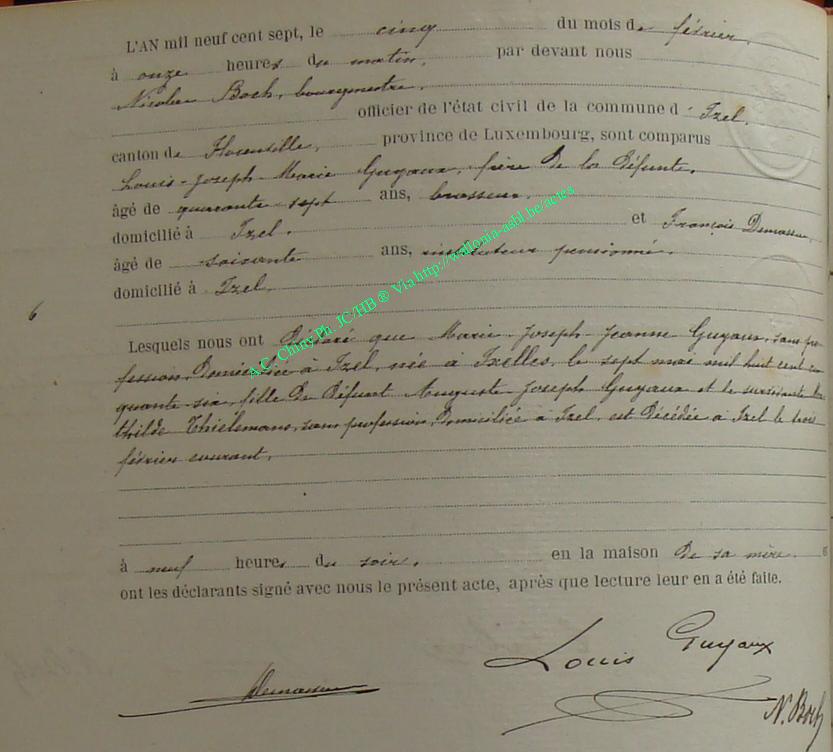 L'AN mil neuf cent sept, le cinq du mois de février,
à onze heures du matin, par devant nous
Nicolas Boch, bourgmestre,
officier de l'état civil de la commune d'Izel,
canton de Florenville, province de Luxembourg, sont comparus
Louis-Joseph-Marie Guyaux, frère de la défunte,
âgé de quarante sept ans, brasseur,
domicilié à Izel, et François Demasseu,
âgé de soixante ans, instituteur pensionné,
domicilié à Izel,
6
Lesquels nous ont déclaré que Marie-Joseph Jeanne Guyaux, sans pro-
fession, domiciliée à Izel, née à Ixelles, le sept mai mil huit cent cin
quante-six, fille de défunt Auguste-Joseph Guyaux et de survivante Ma
thilde Thielemans, sans profession, domiciliée à Izel, est décédée à Izel le trois
février courant,
à neuf heures du soir, en la maison de sa mère.
ont les déclarants signé avec nous le présent acte, après que lecture leur en a été faite.
Louis Guyaux
N. Boch
A.C. Chiny Ph. JC/HB ® Via http://wallonia-asbl.be/actes